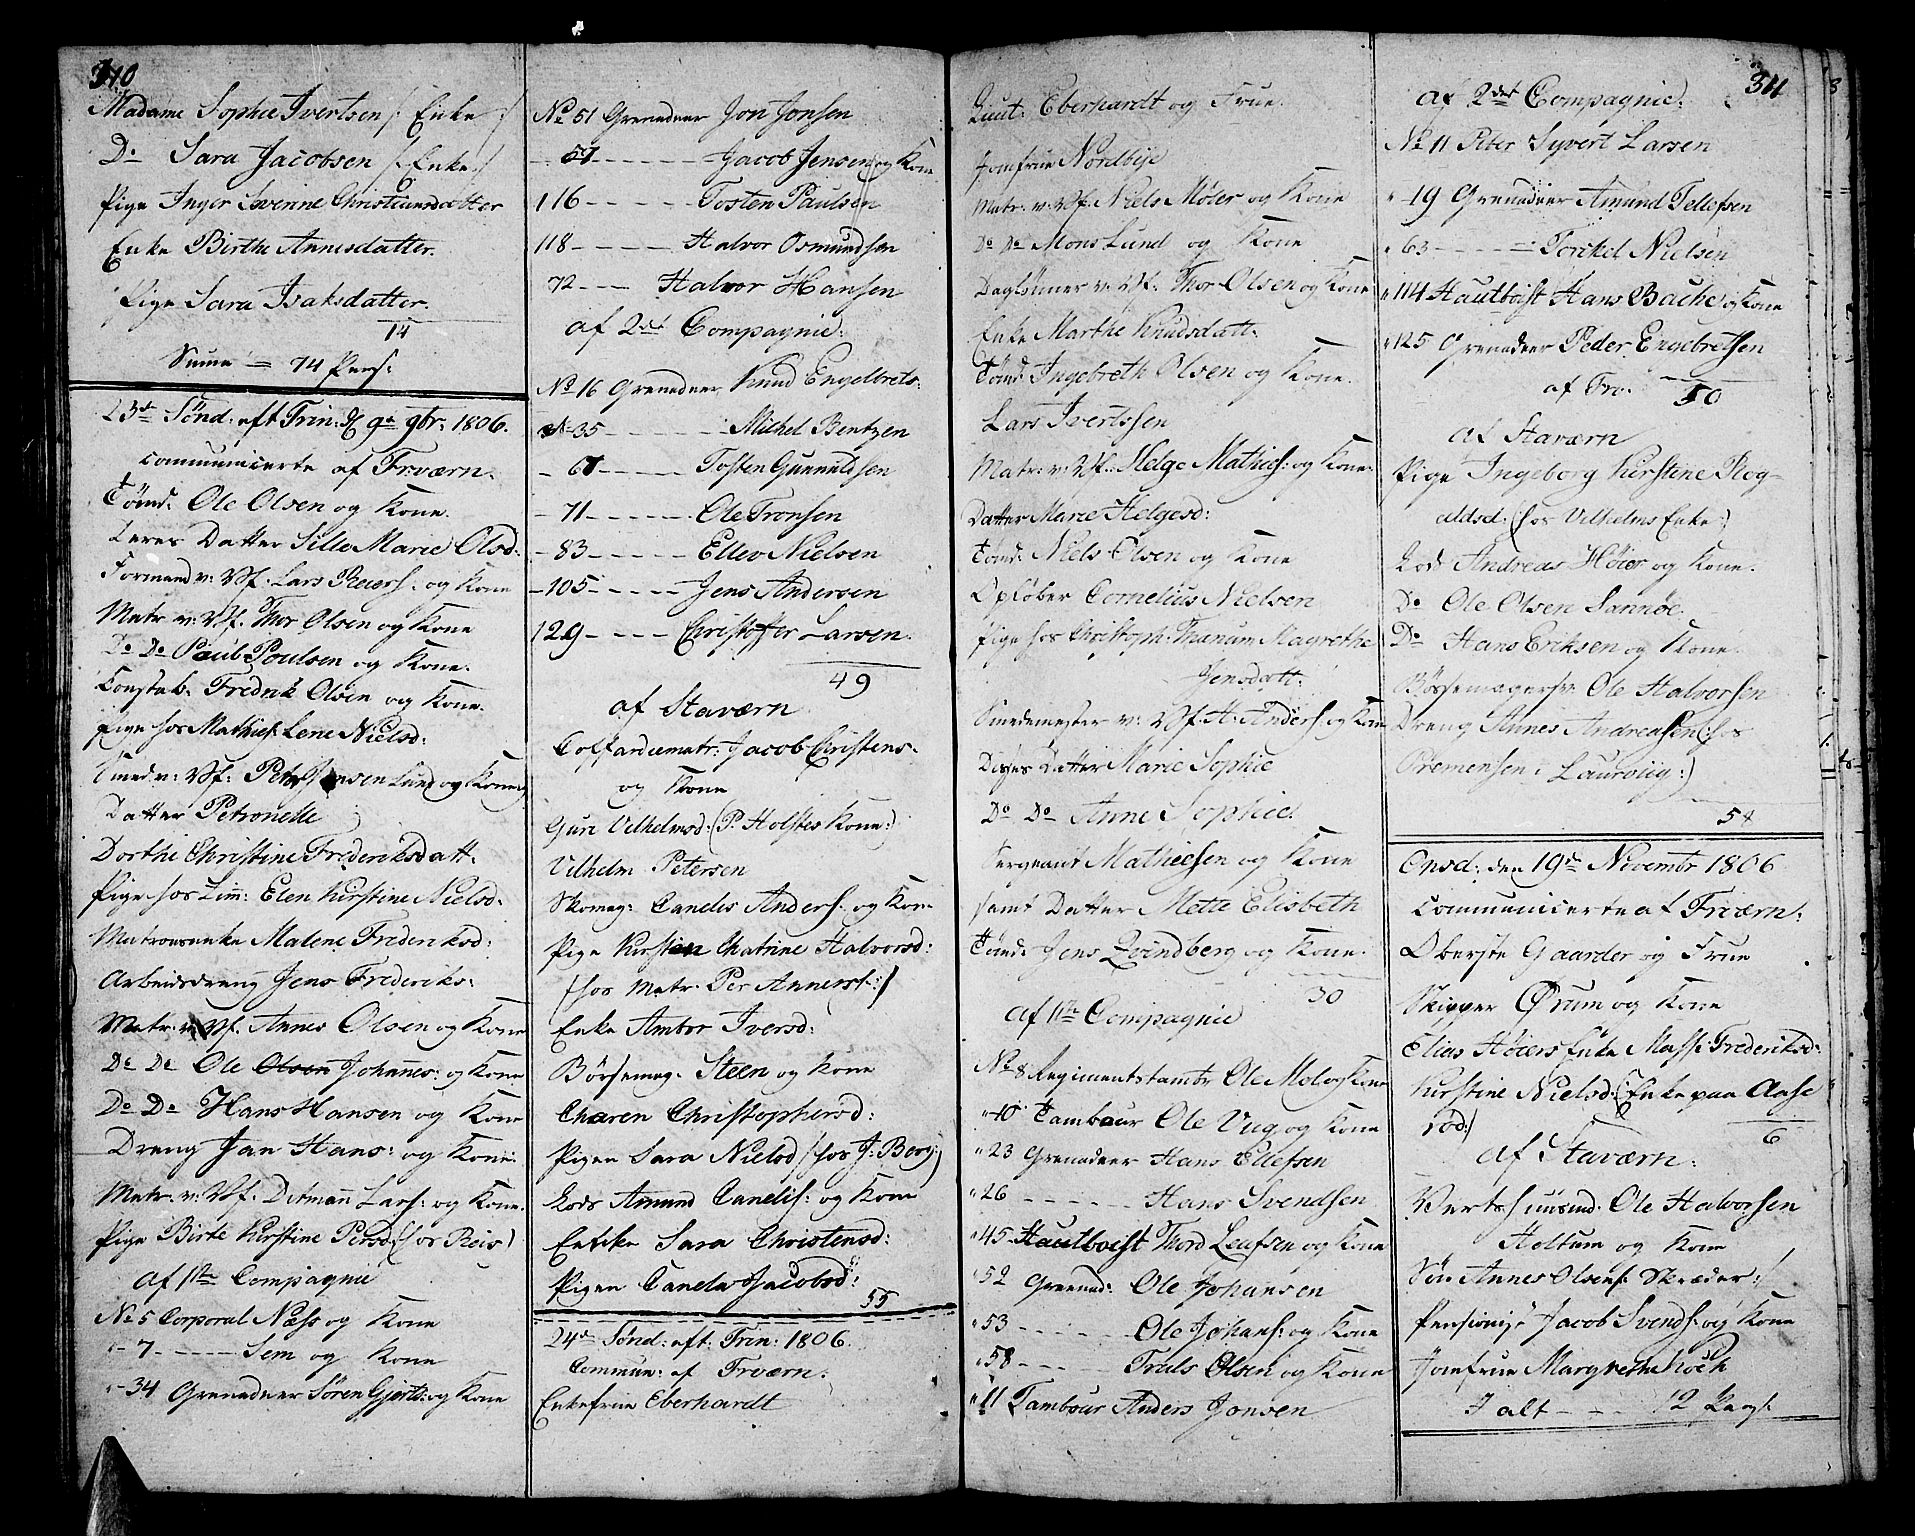 310
Madame Sophie Ivertsen /: Enke :/
Do Sara Jacobsen /: Enke :/
Pige Inger Svenne Christiansdatter
Enke Birthe Annesdatter.
Pige Sara Isaksdatter.
14
Suma = 74 Pers:
23de Sönd: eft Trin: d. 9de 9br: 1806.
communicerte af Frværn.
Tömd: Ole Olsen og Kone.
Deres Datter Sille Marie Olsd:
Formand v: Vf. Lars Reiers: og Kone
Matr. v: Vf. Thor Olsen og Kone
Do Do Paul Poulsen og Kone.
Constab. Fredrik Olsen og Kone.
Pige hos Mathies: Lene Nielsd:
Smed v: Vf: Peter Jensen Lund og Kone
Datter Petronelle
Dorthe Christine Frederiksdatt.
Pige hos Lim: Elen Kirstine Nielsd:
Matrosenke Malene Frederiksd:
Arbeidsdreng Jens Frederiks:
Matr. v: Vf. Annes Olsen og Kone
Do Do Ole Olsen Johannes: og Kone
Do Do Hans Hansen og Kone
Dreng Jan Hans: og Kone.
Matr. v: Vf. Ditmann Lars: og Kone.
Pige Birte Kirstine Persd: (hos Reis)
af 1ste Compagnie
No 5 Corporal Næss og Kone
"- 7 - - - - Sem og Kone
"- 34 Grenadeer Sören Gjerts: og Kone
No 51 Grenadeer Jon Jonsen
- 57 - - - - - Jacob Jensen og Kone
116 - - - - - Tosten Paulsen
118 - - - - - Halvor Osmundsen
72 - - - Halvor Hansen
af 2det Compagnie:
No 16 Grenadeer Knud Engelbrets:
35 - - - - - Mithel Bentzen
- 67 - - - - - Tosten Gunnuldsen
- 71 - - - - - Ole Tronsen
- 83 - - - - - Ellev Nielsen
- 105 - - - - - Jens Andersen
129 - - - - Christoffer Larsen.
49
af Staværn
Coffardiematr: Jacob Christens.
og Kone
Guri Vilhelmsd: (P. Holstes Kone:)
Vilhelm Petersen
Skomag: Canelis Anders: og Kone
Pige Kirsten Chatrine Halvorsd:
/: hos Matr. Per Anners: :/
Enke Ambor Iversd:
Börsemag. Steen og Kone
Charen Christophersd:
Pigen Sara Nielsd /: hos J: Berg:)
Lods Amund Canelis: og Kone
Enke Sara Christensd:
Pigen Canela Jacobsd:
55
24de Sönd: eft: Trin: 1806.
Commun: af Frværn:
Enkefrue Eberhardt
Lieut: Eberhardt og Frue.
Jomfrue Nordbye
Matr: v: Vf: Niels Möler og Kone
Do Do Mons Lund og Kone
Daglönner v: Vf: Thor Olsen og Kone
Enke Marthe Knudsdatt.
Tömd: Ingebreth Olsen og Kone.
Lars Ivertssen
Matr: v: Vf.: Helge Mathies: og Kone:
Datter Marie Helgesd:
Tömd: Niels Olsen og Kone
Opsöber Cornelius Nielsen
Pige hos Christoph: Thanum Magrethe
Jensdatt:
Smedemester v: Vf. A: Anders: og Kone
Deres Datter Marie Sophie
Do Do Anne Sophie.
Sergeant Mathiesen og Kone
samt Datter Mette Elisbeth
Tömd: Jens Qvindberg og Kone.
30
af 1ste Compagnie
No 8 Regimentstambr Ole Mol og Kone
"- 10 Tambour Ole Vug og Kone
" 23 Grenadeer Hans Ellefsen
" 26 - - - - Hans Svendsen
" 45 - Hautboist Thord Leufsen og Kone
" 52 Grenad: Ole Johansen
" 53 - - - - Ole Johans: og Kone
" 58 - - - Truls Olsen og Kone
" 11 Tambour Anders Jonsen
311
af 2det Compagnie.
No 11 Peter Syvert Larsen
" - 19 Grenadeer Amund Tellefsen
" 63 - - - - Torkel Nielsen
" 114 Hautboist Hans Bache og Kone
" 125 Grenadeer Peder Engebretsen
af Fr. 50
af Staværn
Pige Ingeborg Kirstine Rog-
aldsd: (hos Vilhelms Enke:)
Lods Andreas Höier og Kone.
Do Ole Olsen Sannöe.
Do Hans Eriksen og Kone.
Bössemagersv: Ole Halvorsen
Dreng Annes Andreasen (: hos
Bremensen i Laurvig:)
58
Onsd: den 19de Nivembr 1806
Communicerte af Frværn:
Oberste Gaarder og Frue
Skipper Örum og Kone
Elias Höiers Enke Mass: Frederiksd:
Kirstine Nielsd: (: Enke paa Aase
röd:/
6
af Staværn:
Ole Halvorsen
Holtum og Kone
Sön Annes Olsen: Skræder:/
Pensionist Jacob Svends: og Kone
Jomfrue Margrethe Koch
I alt - - - 12 Pers: